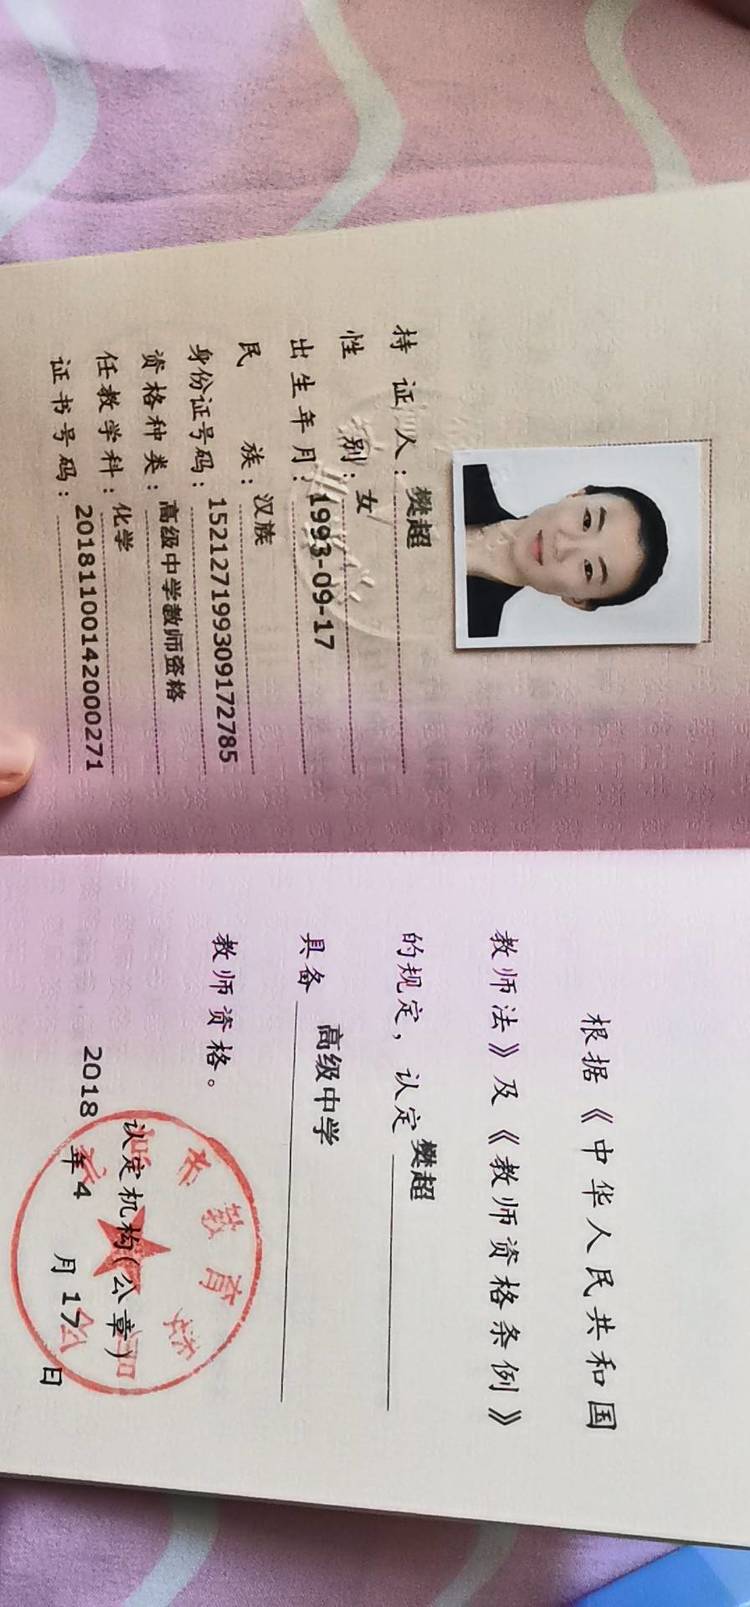 持证人：樊超
性别：女
出生年月：1993-09-17
民族：汉族
身份证号码：152127199309172785
资格种类：高级中学教师资格
任教学科：化学
证书号码：20181100142000271
根据《中华人民共和国
教师法》及《教师资格条例》
的规定，认定樊超
具备高级中学
教师资格。
认定机构(公章)
2018年4月17日
市教育